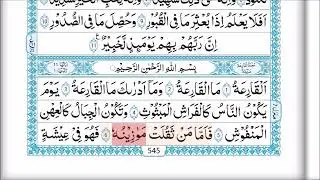 اَفَلَا يَعْلَمُ اِذَا بُعْثِرَ مَا فِى الْقُبُوْرِ وَحُصِّلَ مَا فِى الصُّدُوْرِ
اِنَّ رَبَّهُمْ بِهِمْ يَوْمَئِذٍ لَّخَبِيْرٌ
بِسْمِ اللّٰهِ الرَّحْمٰنِ الرَّحِيْمِ
اَلْقَارِعَةُ مَا الْقَارِعَةُ وَمَآ اَدْرٰىكَ مَا الْقَارِعَةُ يَوْمَ
يَكُوْنُ النَّاسُ كَالْفَرَاشِ الْمَبْثُوْثِ وَتَكُوْنُ الْجِبَالُ كَالْعِهْنِ
الْمَنْفُوْشِ فَاَمَّا مَنْ ثَقُلَتْ مَوَازِيْنُهٗ فَهُوَ فِىْ عِيْشَةٍ
545